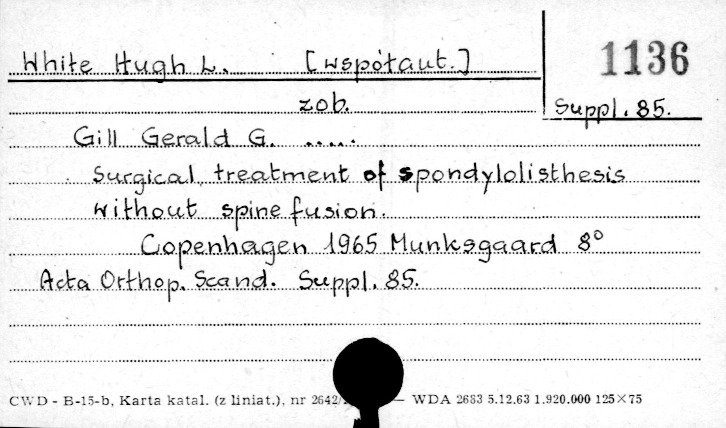 White Hugh L. [współaut.] 1136
zob. Suppl. 85.
Gill Gerald G. .....
Surgical treatment of spondylolisthesis
without spine fusion.
Copenhagen 1965 Munksgaard 8°
Acta Orthop. Scand. Suppl. 85.
CWD - B-15-b, Karta katal. (z liniat.), nr 2642/ — WDA 2683 5.12.63 1.920.000 125×75